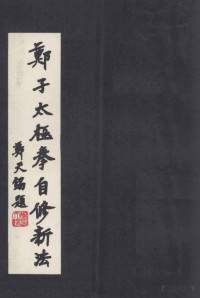 鄭子太極拳自修新法
鄭天錫題